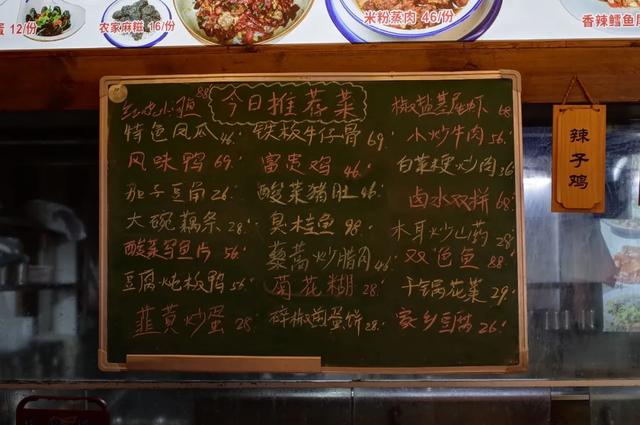 蛋 12/份
农家麻糍 16/份
米粉蒸肉 46/份
香辣鳕鱼
今日推荐菜
88
椒盐基尾虾 68
特色凤爪 46.
铁板牛仔骨 69.
小炒牛肉 56.
风味鸭 69.
富贵鸡 46
白菜梗炒肉 36
茄子豆角 26.
酸菜猪肚 46.
卤水双拼 68.
大碗藕条 28.
臭桂鱼 98.
木耳炒山药 28
酸菜鱼片 56.
藜蒿炒腊肉 46
双色鱼 88.
豆腐炖板鸭 56.
南花糊 28.
干锅花菜 29.
韭黄炒蛋 28
碎椒煎蛋饼 28.
家乡豆腐 26.
辣子鸡